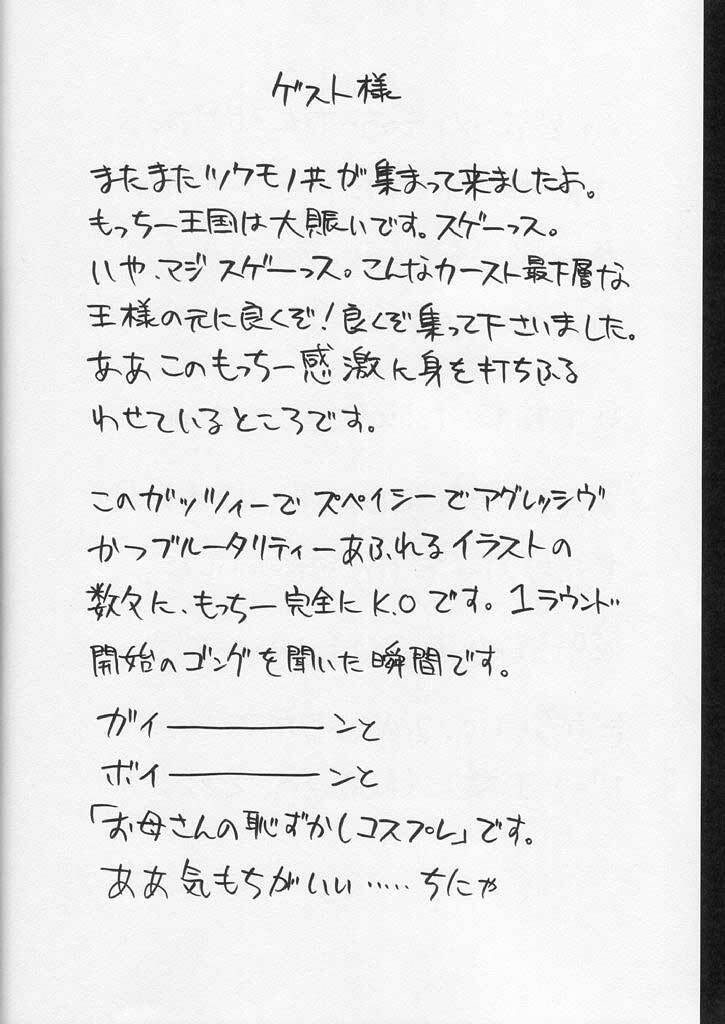 ゲスト様
またまたツワモノ共が集まって来ましたよ。
もっちー王国は大賑いです。スゲーっス。
いや、マジスゲーっス。こんなカースト最下層な
王様の元に良くぞ!良くぞ集って下さいました。
ああこのもっちー感激に身を打ちふる
わせているところです。
このガッツィーでスペイシーでアグレッシヴ
かつブルータリティーあふれるイラストの
数々に、もっちー完全にK.Oです。1ラウンド
開始のゴングを聞いた瞬間です。
ガィ――――ンと
ボィ――――ンと
「お母さんの恥ずかしコスプレ」です。
ああ気もちがいい……ちにゃ